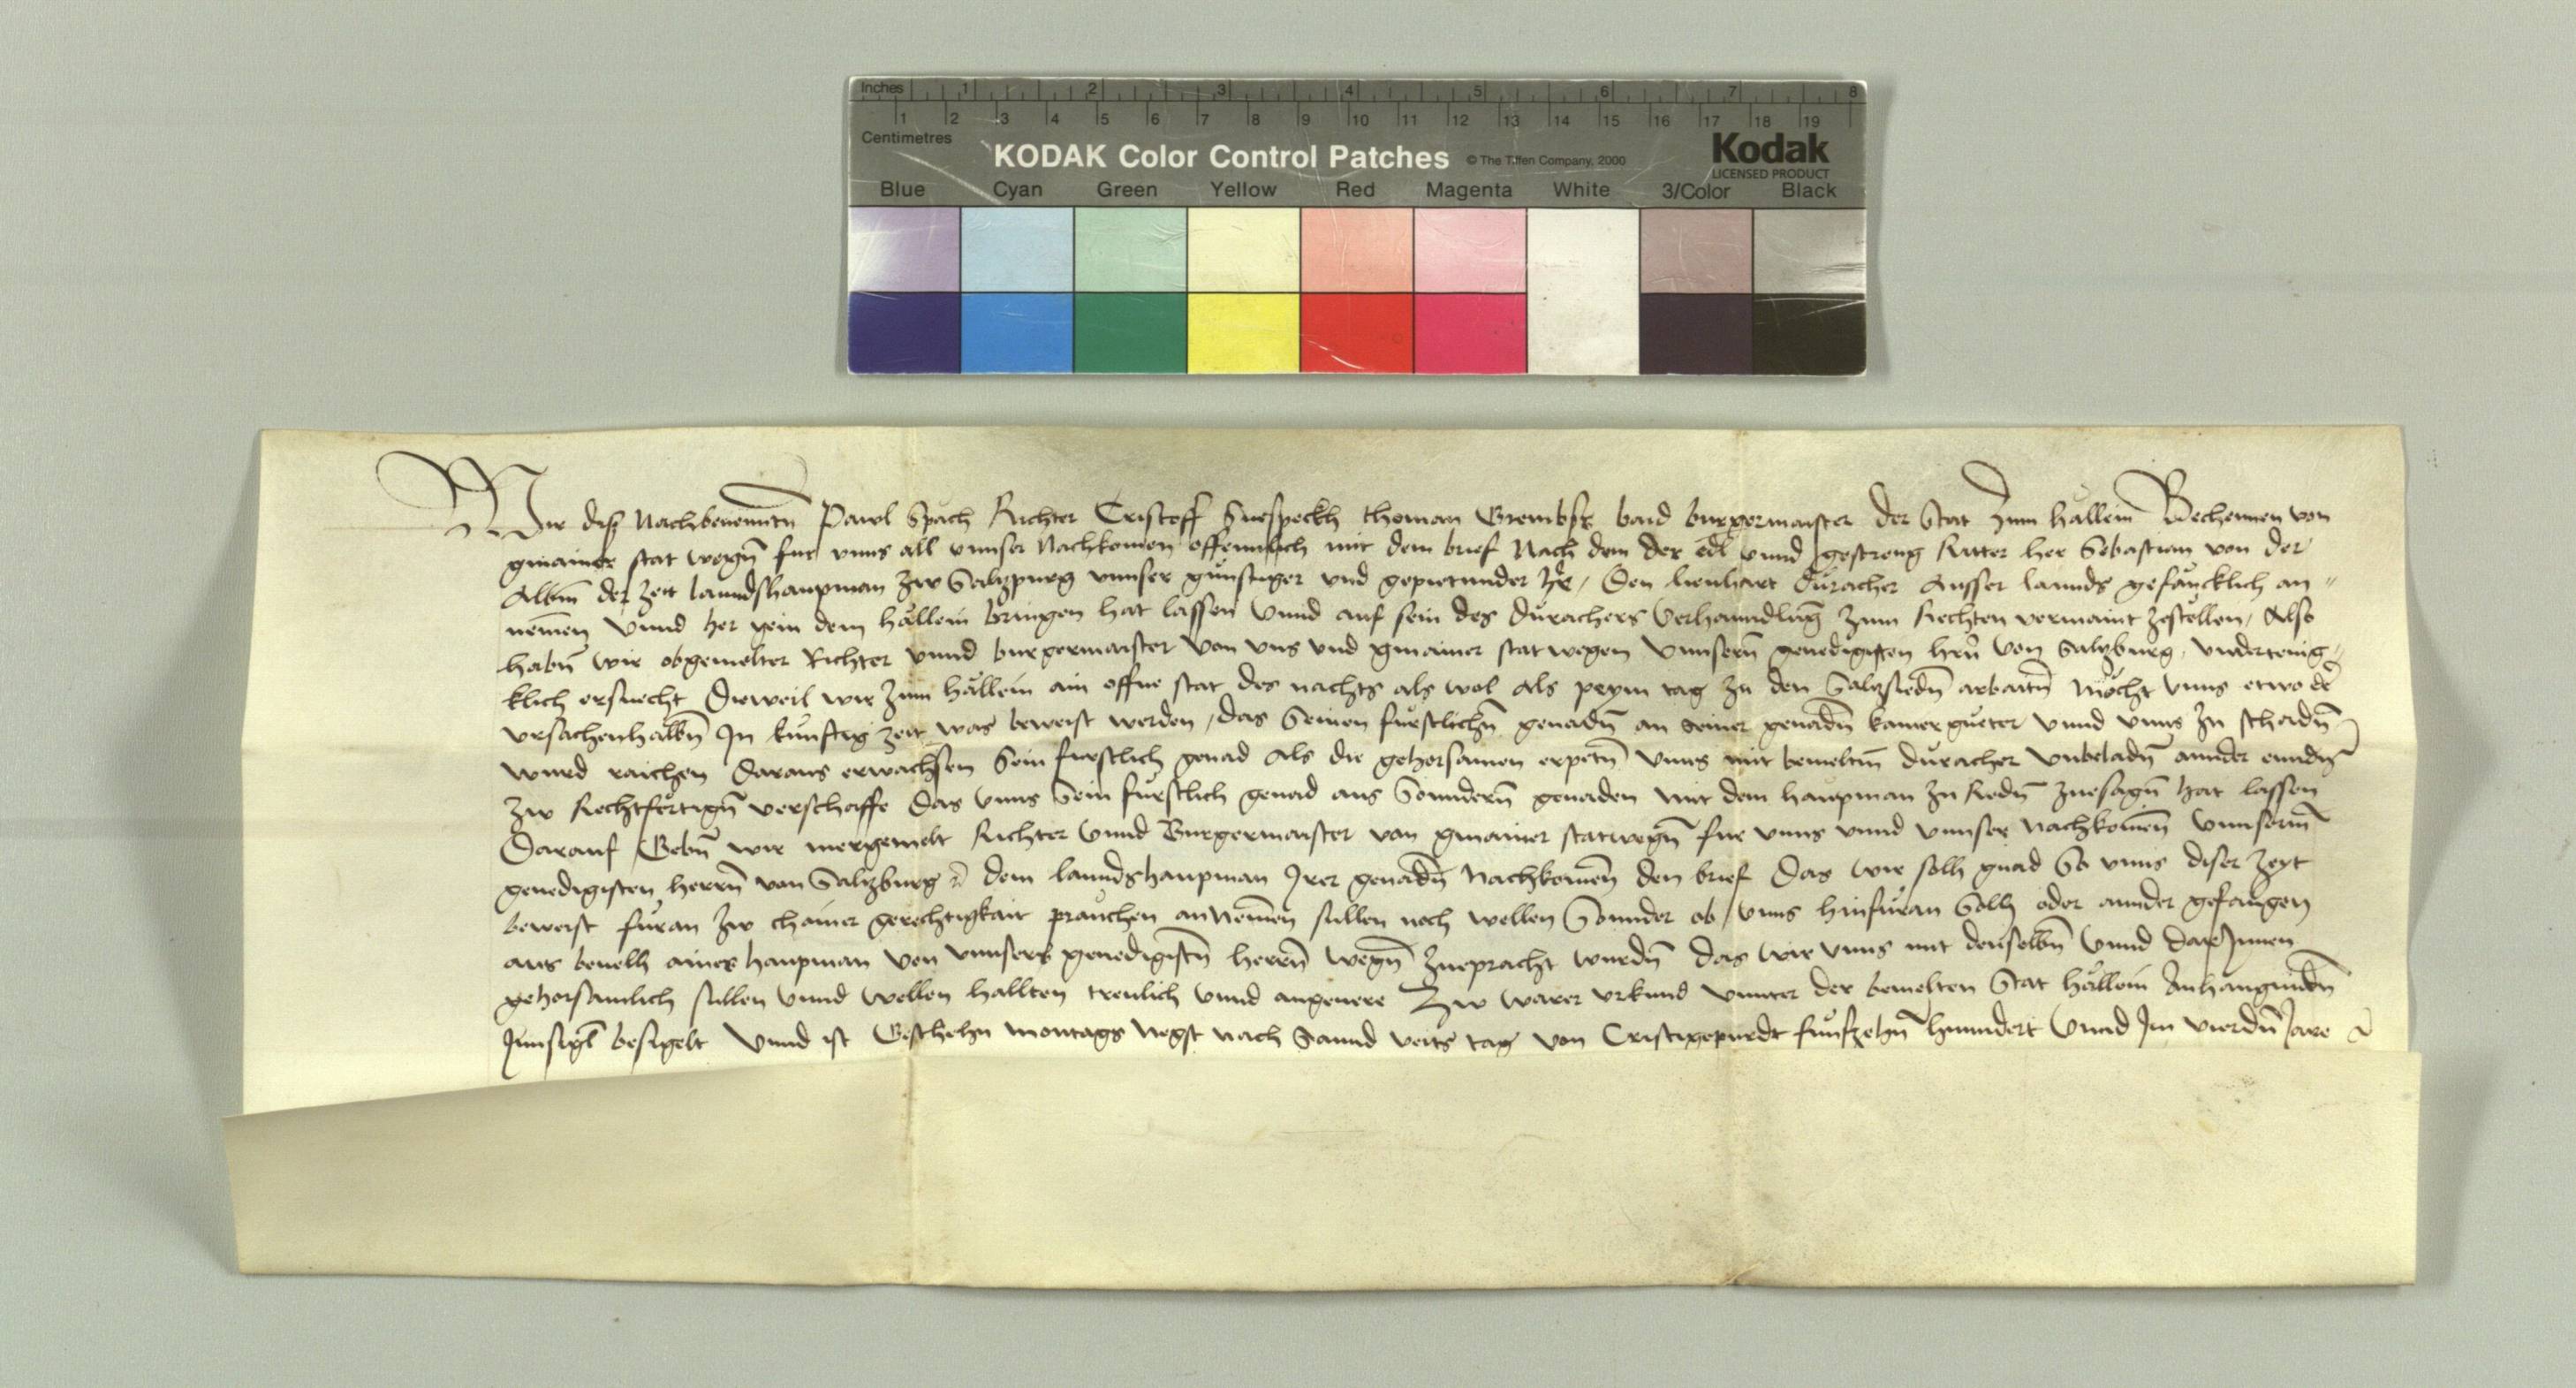 Inches 1 2 3 4 5 6 7 8
1 2 3 4 5 6 7 8 9 10 11 12 13 14 15 16 17 18 19
Centimetres
KODAK Color Control Patches © The Tiffen Company, 2000 Kodak
LICENSED PRODUCT
Blue Cyan Green Yellow Red Magenta White 3/Color Black
Wir dise Nachbenenntn̄ Pawl Spǎch Richter Cristoff Suespeckh thoman baid burgermaister der Stat Zum hǎllein Bechennen von
gmainer stat wegn̄ fur vnns all vnnser Nachkomen offennlich mit dem brief Nach dem der edl vnnd gestreng Ritter her Sebastian von der
Albm̄ der zeit lanndshaupman zw Saltzpurg vnnser gůnstiger vnd gepietunder / Den lienhart důracher Ausser lannds gefäncklich an"
nemen̄ Vnnd her gein dem hǎllein bringen hat lassen Vnnd auf sein des důrachers Verhanndlūg Zum Rechten vermaint zestellen, Also
habn̄ wir obgemelter Richter vnnd burgermaister Von vns vnd gmainer stat wegen Vnnsern̄ genedigisten hrn̄ von Saltzburg, vndertenig"
klich ersuecht Dieweil wir Zum hǎllein ain offne stat des nachts als wol als peym tag zu den Saltzsiedn̄ arbaitn̄ mǒcht vnns etwo
vrsachenhalbn̄ In kůnftig zeit was beweist werden, das Seinen fürstlichn̄ genadn̄ an seiner genadn̄ kamergueter Vnnd vnns zu schadn̄
wurd raichen Daraus erwachsen Sein furstlich genad als die gehorsamen erpetn̄ Vnns mit bemeltm̄ důracher Vnbeladn̄ annder enndn̄
zw Rechtfertign̄ verschaffe Das Vnns Sein fürstlich genad aus Sonndern̄ genaden mit dem haupman zu Redn̄ zuesagn̄ hat lassen
Darauf Gebn̄ wir mergemelt Richter Vnnd Burgermaister von gmainer statwegn̄ fur vnns vnnd vnnser nachkomen̄ Vnnserm̄
genedigisten herrn̄ von Saltzburg dem lanndshaupman Irer genadn̄ Nachkomen̄ den brief Das wir solh gnad So vnns diser zeyt
beweist fůran zw chainer gerechtigkait prauchen annemen̄ sullen noch wellen Sonnder ob vnns hinfůran Solh oder annder gefangen
aus beuelh aines haupman von vnnsers genedigistn̄ herrn̄ wegn̄ zuepracht wurdn̄ das wir vnns mit denselbn̄ Vnnd darInnen
gehorsamlich sullen Vnnd wellen hallten treulich Vnnd angeuere Zw warer vrkund vnnter der bemelten Stat hǎllein Anhanngundn̄
Innsigl besigelt Vnnd ist Geschehn montags negst nach Sannd veits tag von Cristigepurdt fůnfzehn̄ hunndert Vnnd Im vierdn̄ Jare